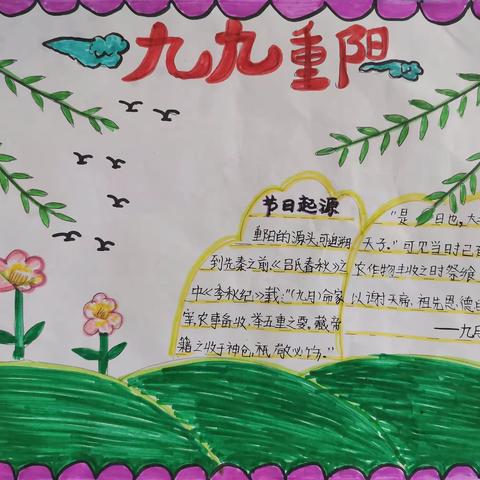 九九重阳
节日起源
重阳的源头,可追溯
到先秦之前《吕氏春秋》之
中《季秋纪》载:"(九月)命家
宰,农事备收,举五重之要。藏帝
籍之收于神仓,祇敬必饬。"
"是日也,大
天子。"可见当时已有
农作物丰收之时祭飨
以谢天帝、祖先恩德的
——九月